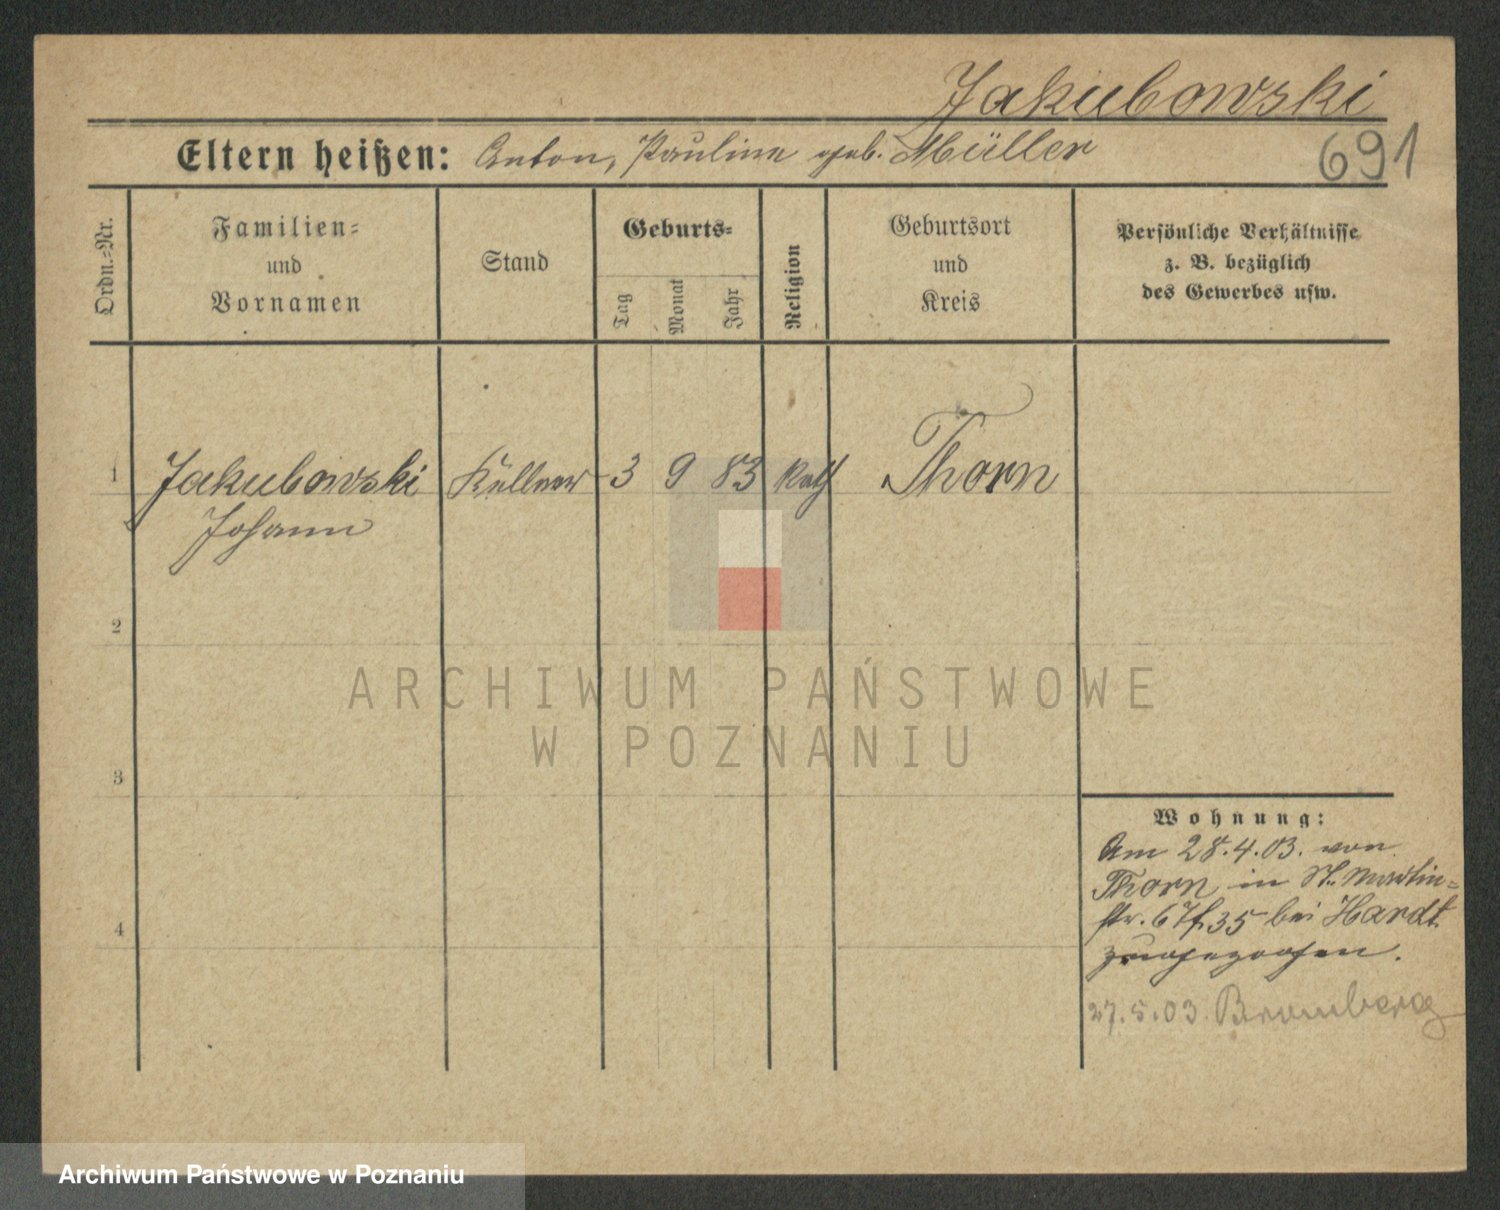 Jakubowski
Eltern heißen: Anton, Pauline geb. Müller
691
Ordn.-Nr.
Familien-
und
Vornamen
Stand
Geburts-
Tag
Monat
Jahr
Religion
Geburtsort
und
Kreis
Persönliche Verhältnisse
z. B. bezüglich
des Gewerbes usw.
1 Jakubowski Kellner 3 9 83 kath Thorn
Johann
2
ARCHIWUM PAŃSTWOWE
W POZNANIU
3
Wohnung:
Am 28.4.03. von
Thorn in St. Martin-
str. 67 bei Hardt
zugezogen.
4
27.5.03. Bromberg
Archiwum Państwowe w Poznaniu